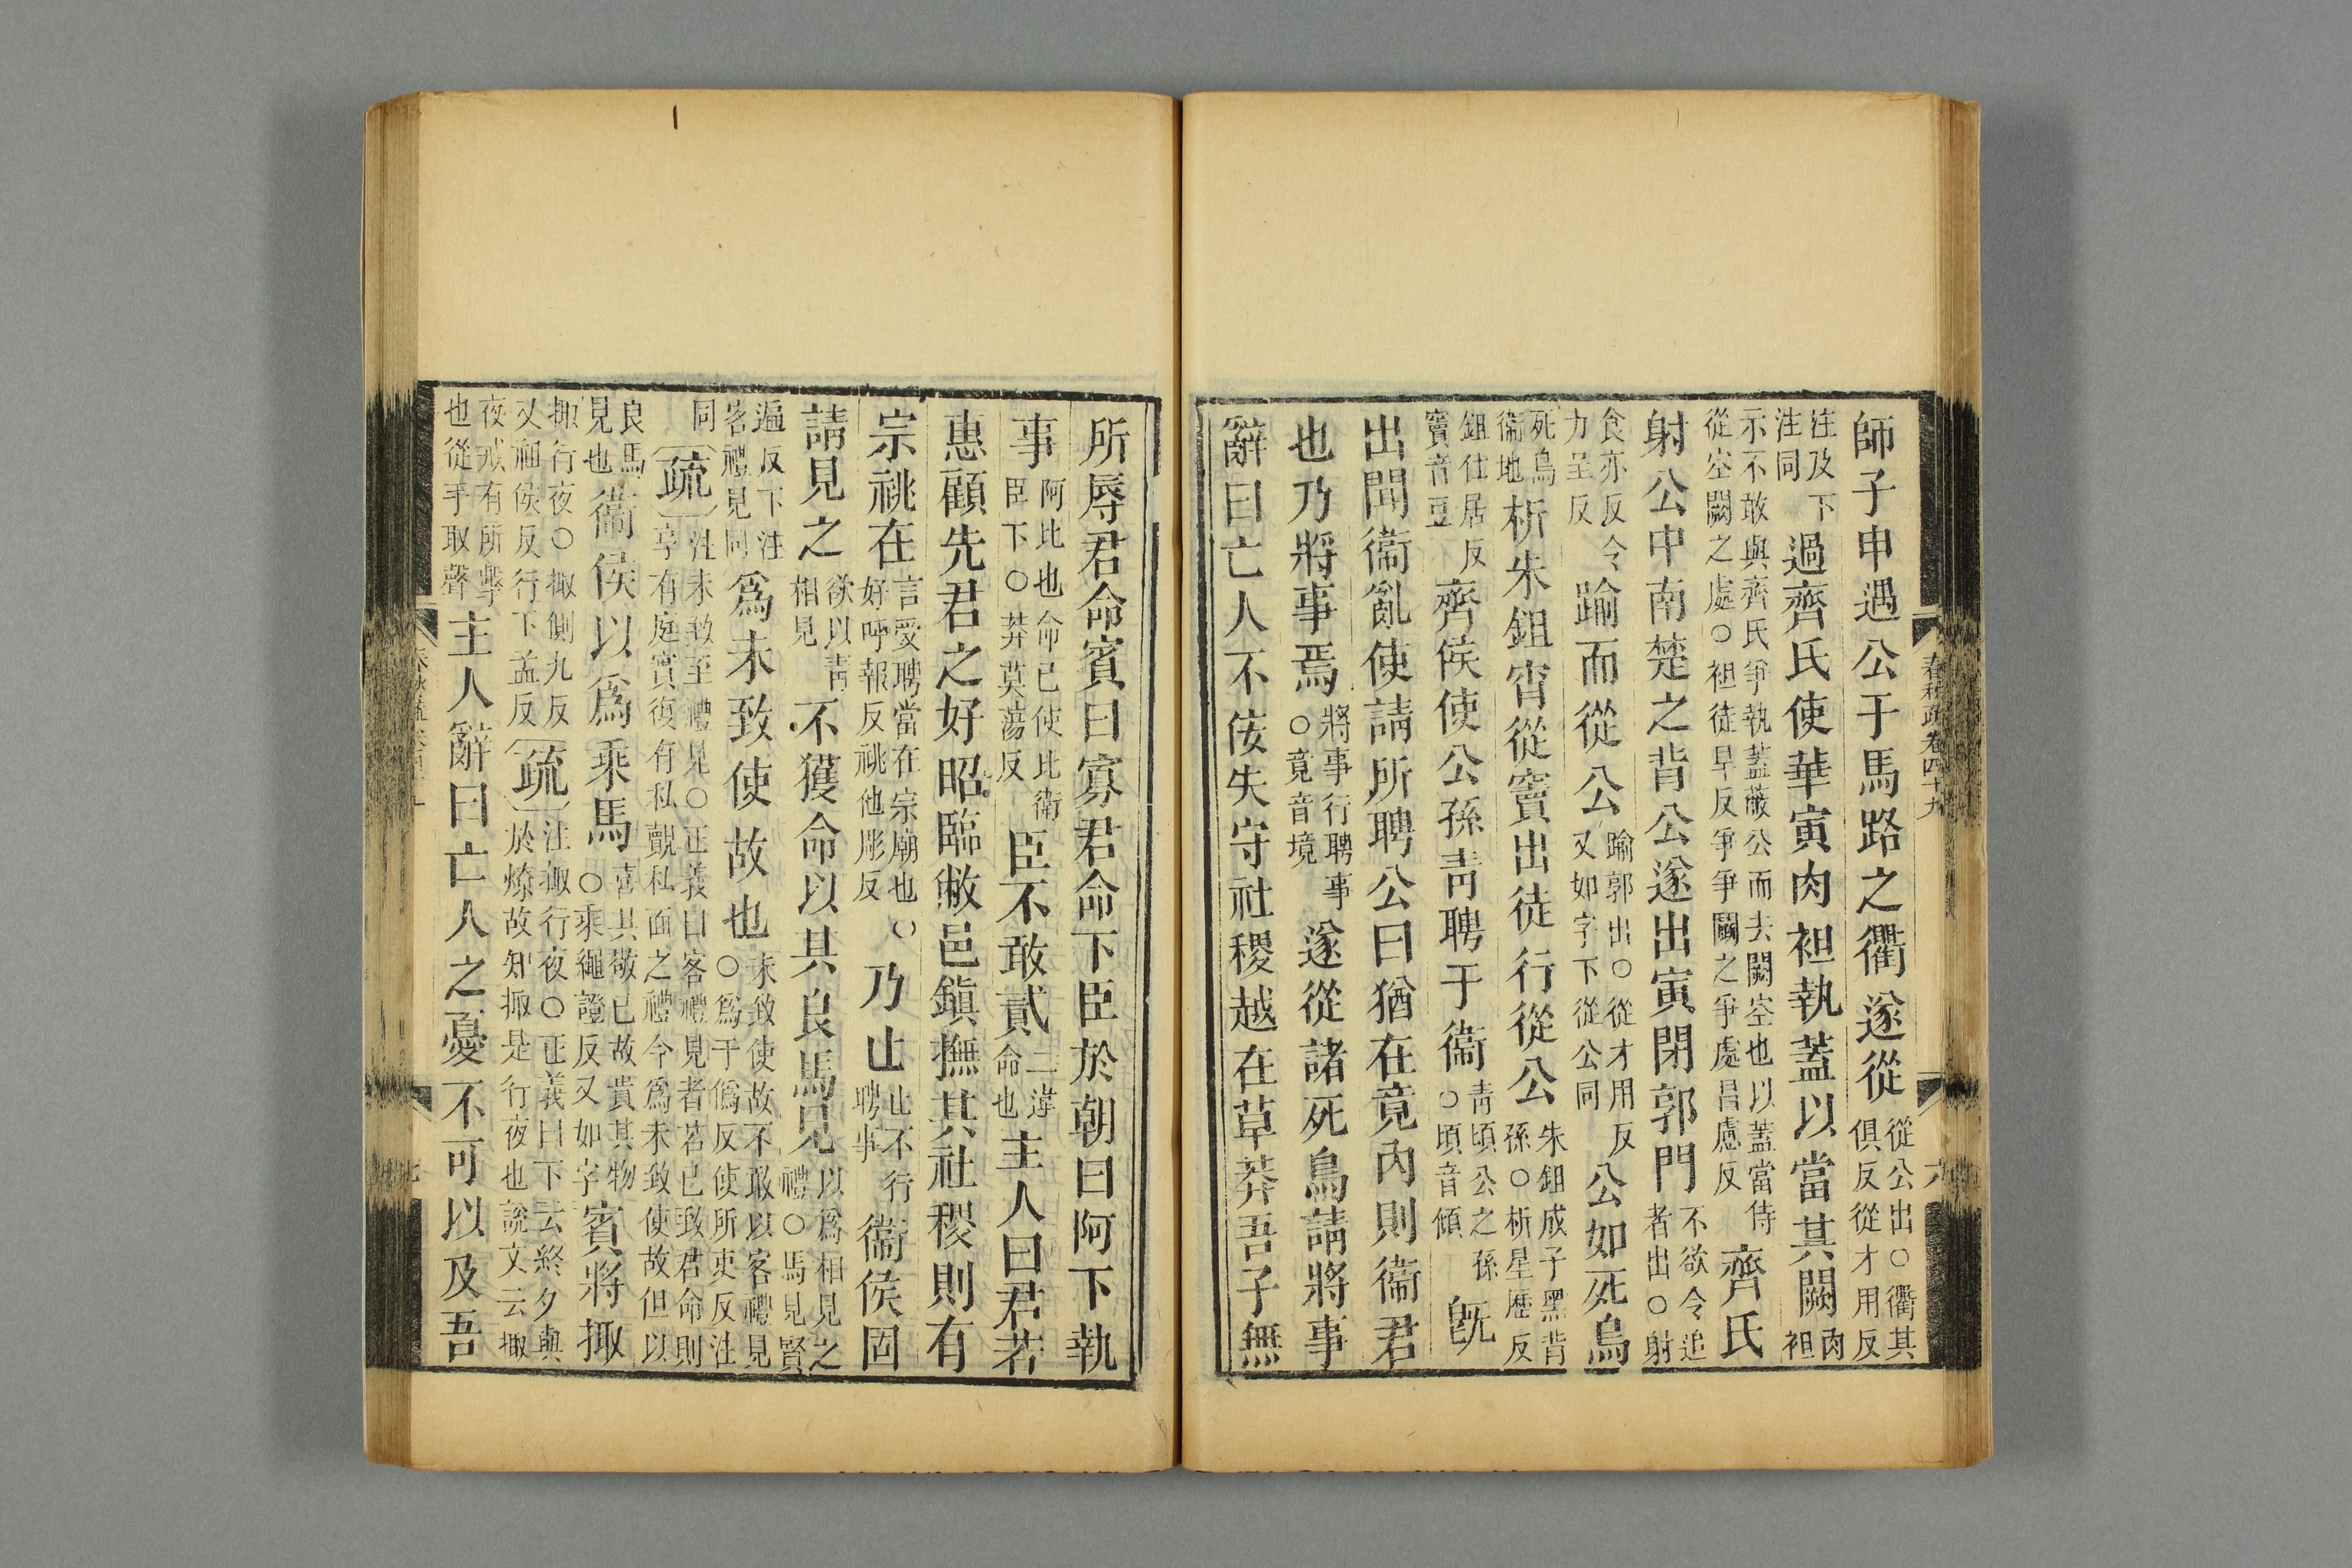 師子申遇公于馬路之衢遂從從公出○衢其俱反從才用反
注及下注同過齊氏使華寅肉袒執蓋以當其闕肉袒
示不敢與齊氏爭執蓋蔽公而去闕空也以蓋當侍從空闕之處○袒徒旱反爭爭鬬之爭處昌慮反齊氏
射公中南楚之背公遂出寅閉郭門不欲令追者出○射
食亦反令力呈反踰而從公踰郭出○從才用反又如字下從公同公如死鳥
死鳥衞地析朱鉏宵從竇出徒行從公朱鉏成子黑背孫○析星歷反
鉏仕居反竇音豆齊侯使公孫靑聘于衞靑頃公之孫○頃音傾旣
出聞衞亂使請所聘公曰猶在竟內則衞君
也乃將事焉將事行聘事○竟音境遂從諸死鳥請將事
辭曰亡人不佞失守社稷越在草莽吾子無
春秋疏卷四十九
六
所辱君命賓曰寡君命下臣於朝曰阿下執
事阿比也命已使比衞臣下○莽莫蕩反臣不敢貳二違命也主人曰君若
惠顧先君之好昭臨敝邑鎭撫其社稷則有
宗祧在言受聘當在宗廟也○好呼報反祧他彫反乃止止不行聘事衞侯固
請見之欲以靑相見不獲命以其良馬見以爲相見之禮○馬見賢
遍反下注客禮見同爲未致使故也未致使故不敢以客禮見○爲于僞反使所吏反注
同疏注未致至禮見○正義曰客禮見者若已致君命則享有庭實復有私覿私面之禮今爲未致使故但以
良馬見也衞侯以爲乘馬喜其敬已故貴其物○乘繩證反又如字賓將掫
掫行夜○掫側九反又祖侯反行下孟反疏注掫行夜○正義曰下云終夕與於燎故知掫是行夜也說文云掫
夜戒有所擊也從手取聲主人辭曰亡人之憂不可以及吾